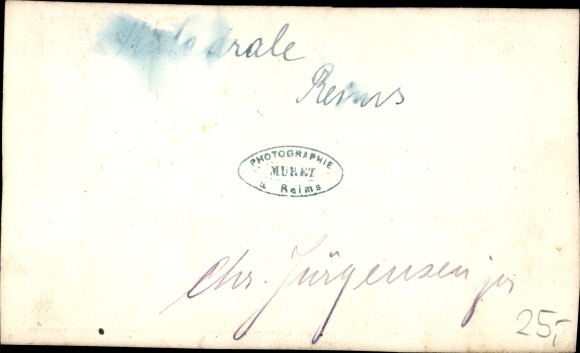 Cathedrale
Reims
PHOTOGRAPHIE
MURET
à Reims
Chr. Jürgensen jr
25,-